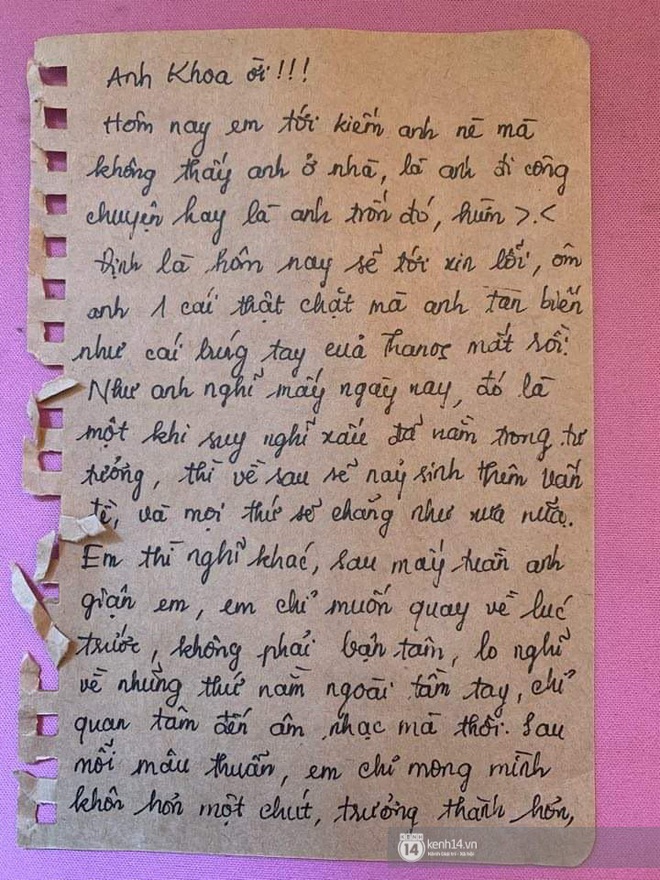 Anh Khoa ơi!!!
Hôm nay em tới kiếm anh nè mà
không thấy anh ở nhà, là anh đi công
chuyện hay là anh trốn đó, hừm >.<
Định là hôm nay sẽ tới xin lỗi, ôm
anh 1 cái thật chặt mà anh tan biến
như cái búng tay của Thanos mất rồi.
Như anh nghĩ mấy ngày nay, đó là
một khi suy nghĩ xấu đã nằm trong tư
tưởng, thì về sau sẽ nảy sinh thêm vấn
đề, và mọi thứ sẽ chẳng như xưa nữa.
Em thì nghĩ khác, sau mấy tuần anh
giận em, em chỉ muốn quay về lúc
trước, không phải bận tâm, lo nghĩ
về những thứ nằm ngoài tầm tay, chỉ
quan tâm đến âm nhạc mà thôi. Sau
mỗi mâu thuẫn, em chỉ mong mình
khôn hơn một chút, trưởng thành hơn,
KENH 14
kenh14.vn